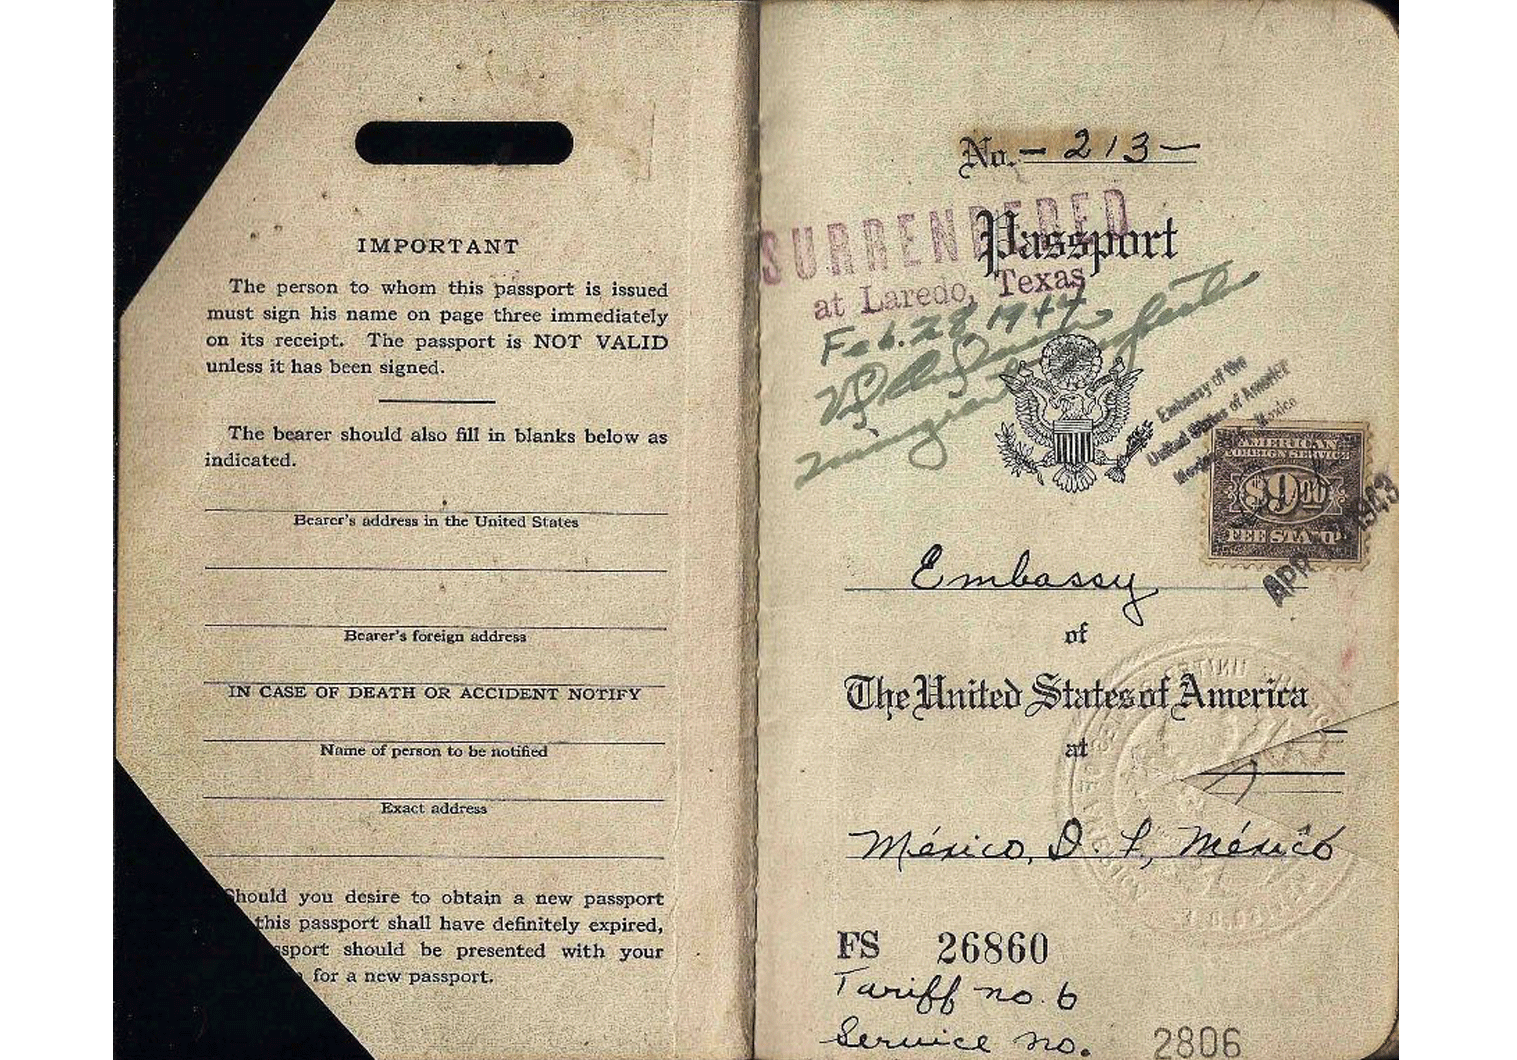 IMPORTANT
The person to whom this passport is issued
must sign his name on page three immediately
on its receipt. The passport is NOT VALID
unless it has been signed.
The bearer should also fill in blanks below as
indicated.
Bearer's address in the United States
Bearer's foreign address
IN CASE OF DEATH OR ACCIDENT NOTIFY
Name of person to be notified
Exact address
Should you desire to obtain a new passport
this passport shall have definitely expired,
sport should be presented with your
for a new passport.
No. - 213 -
SURRENDERED
Passport
at Laredo, Texas
Feb. 28 1944
Embassy of the
United States of America
Mexico
AMERICAN
FOREIGN SERVICE
$9.00
FEE STAMP
APR 1943
Embassy
of
The United States of America
at
México, D. F, México
FS 26860
Tariff no. 6
Service no. 2806